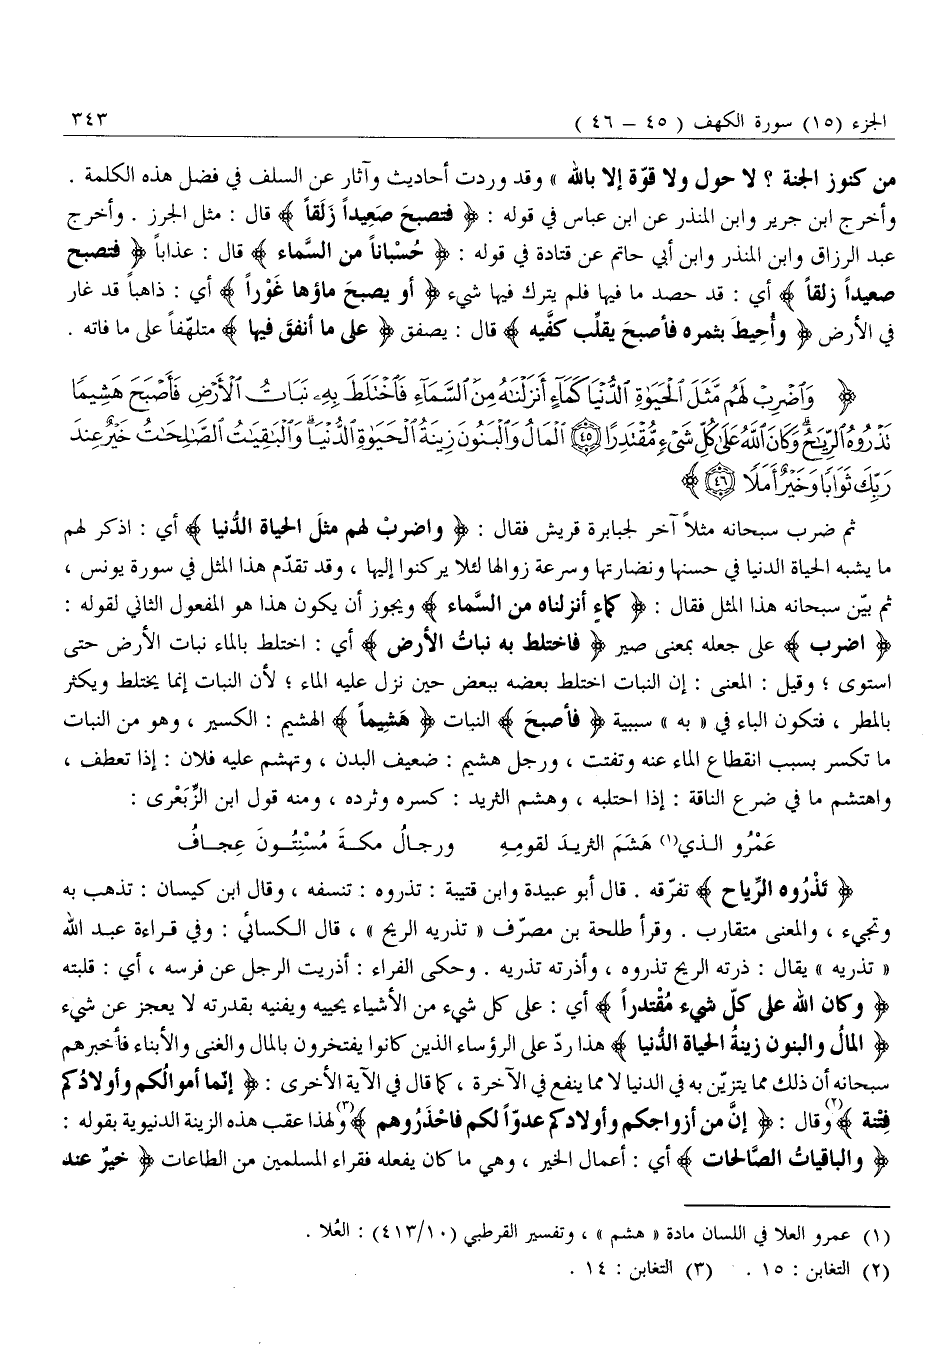 الجزء (١٥) سورة الكهف ( ٤٥ – ٤٦ ) ٣٤٣
من كنوز الجنة ؟ لا حول ولا قوّة إلا بالله » وقد وردت أحاديث وآثار عن السلف في فضل هذه الكلمة .
وأخرج ابن جرير وابن المنذر عن ابن عباس في قوله : ﴿ فتصبحَ صَعِيداً زَلَقاً ﴾ قال : مثل الجرز . وأخرج
عبد الرزاق وابن المنذر وابن أبي حاتم عن قتادة في قوله : ﴿ حُسْباناً من السَّماء ﴾ قال : عذاباً ﴿ فتصبح
صعيداً زلقاً ﴾ أي : قد حصد ما فيها فلم يترك فيها شيء ﴿ أو يصبحَ ماؤها غَوْراً ﴾ أي : ذاهباً قد غار
في الأرض ﴿ وأُحيطَ بثمره فأصبحَ يقلِّب كفَّيه ﴾ قال : يصفق ﴿ على ما أنفقَ فيها ﴾ متلهّفاً على ما فاته .
﴿ وَٱضْرِبْ لَهُم مَّثَلَ ٱلْحَيَوٰةِ ٱلدُّنْيَا كَمَآءٍ أَنزَلْنَٰهُ مِنَ ٱلسَّمَآءِ فَٱخْتَلَطَ بِهِۦ نَبَاتُ ٱلْأَرْضِ فَأَصْبَحَ هَشِيمًا
تَذْرُوهُ ٱلرِّيَٰحُ ۗ وَكَانَ ٱللَّهُ عَلَىٰ كُلِّ شَىْءٍ مُّقْتَدِرًا ٤٥ ٱلْمَالُ وَٱلْبَنُونَ زِينَةُ ٱلْحَيَوٰةِ ٱلدُّنْيَا ۖ وَٱلْبَٰقِيَٰتُ ٱلصَّٰلِحَٰتُ خَيْرٌ عِندَ
رَبِّكَ ثَوَابًا وَخَيْرٌ أَمَلًا ٤٦ ﴾
ثم ضرب سبحانه مثلاً آخر لجبابرة قريش فقال : ﴿ واضربْ لهم مثلَ الحياة الدُّنيا ﴾ أي : اذكر لهم
ما يشبه الحياة الدنيا في حسنها ونضارتها وسرعة زوالها لئلا يركنوا إليها ، وقد تقدّم هذا المثل في سورة يونس ،
ثم بيّن سبحانه هذا المثل فقال : ﴿ كماءٍ أنزلناه من السَّماء ﴾ ويجوز أن يكون هذا هو المفعول الثاني لقوله :
﴿ اضرب ﴾ على جعله بمعنى صير ﴿ فاختلط به نباتُ الأرض ﴾ أي : اختلط بالماء نبات الأرض حتى
استوى ؛ وقيل : المعنى : إن النبات اختلط بعضه ببعض حين نزل عليه الماء ؛ لأن النبات إنما يختلط ويكثر
بالمطر ، فتكون الباء في « به » سببية ﴿ فأصبحَ ﴾ النبات ﴿ هَشِيماً ﴾ الهشيم : الكسير ، وهو من النبات
ما تكسر بسبب انقطاع الماء عنه وتفتت ، ورجل هشيم : ضعيف البدن ، وتهشم عليه فلان : إذا تعطف ،
واهتشم ما في ضرع الناقة : إذا احتلبه ، وهشم الثريد : كسره وثرده ، ومنه قول ابن الزِّبَعْرى :
عَمْرُو الـذي(١) هَشَمَ الثريـدَ لقومِـهِ ورجـالُ مكـةَ مُسْنِتُـونَ عِجـافُ
﴿ تَذْرُوه الرِّياح ﴾ تفرّقه . قال أبو عبيدة وابن قتيبة : تذروه : تنسفه ، وقال ابن كيسان : تذهب به
وتجيء ، والمعنى متقارب . وقرأ طلحة بن مصرّف « تذريه الريح » ، قال الكسائي : وفي قراءة عبد الله
« تذريه » يقال : ذرته الريح تذروه ، وأذرته تذريه . وحكى الفراء : أذريت الرجل عن فرسه ، أي : قلبته
﴿ وكان الله على كلّ شيء مُقْتدراً ﴾ أي : على كل شيء من الأشياء يحييه ويفنيه بقدرته لا يعجز عن شيء
﴿ المالُ والبنون زينةُ الحياة الدُّنيا ﴾ هذا ردّ على الرؤساء الذين كانوا يفتخرون بالمال والغنى والأبناء فأخبرهم
سبحانه أن ذلك مما يتزيّن به في الدنيا لا مما ينفع في الآخرة ، كما قال في الآية الأخرى : ﴿ إنّما أموالُكم وأولادُكم
فِتْنة ﴾(٢) وقال : ﴿ إنَّ من أزواجكم وأولادكم عدوّاً لكم فاحْذَرُوهم ﴾(٣) ولهذا عقب هذه الزينة الدنيوية بقوله :
﴿ والباقياتُ الصَّالحات ﴾ أي : أعمال الخير ، وهي ما كان يفعله فقراء المسلمين من الطاعات ﴿ خيرٌ عند
(١) عمرو العلا في اللسان مادة « هشم » ، وتفسير القرطبي (٤١٣/١٠) : العُلا .
(٢) التغابن : ١٥ . (٣) التغابن : ١٤ .